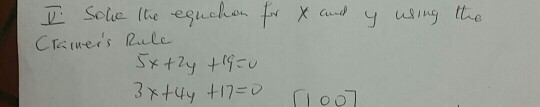 V. Solve the equation for x and y using the
Cramer's Rule
5x+2y +19=0
3x+4y +17=0 [100]